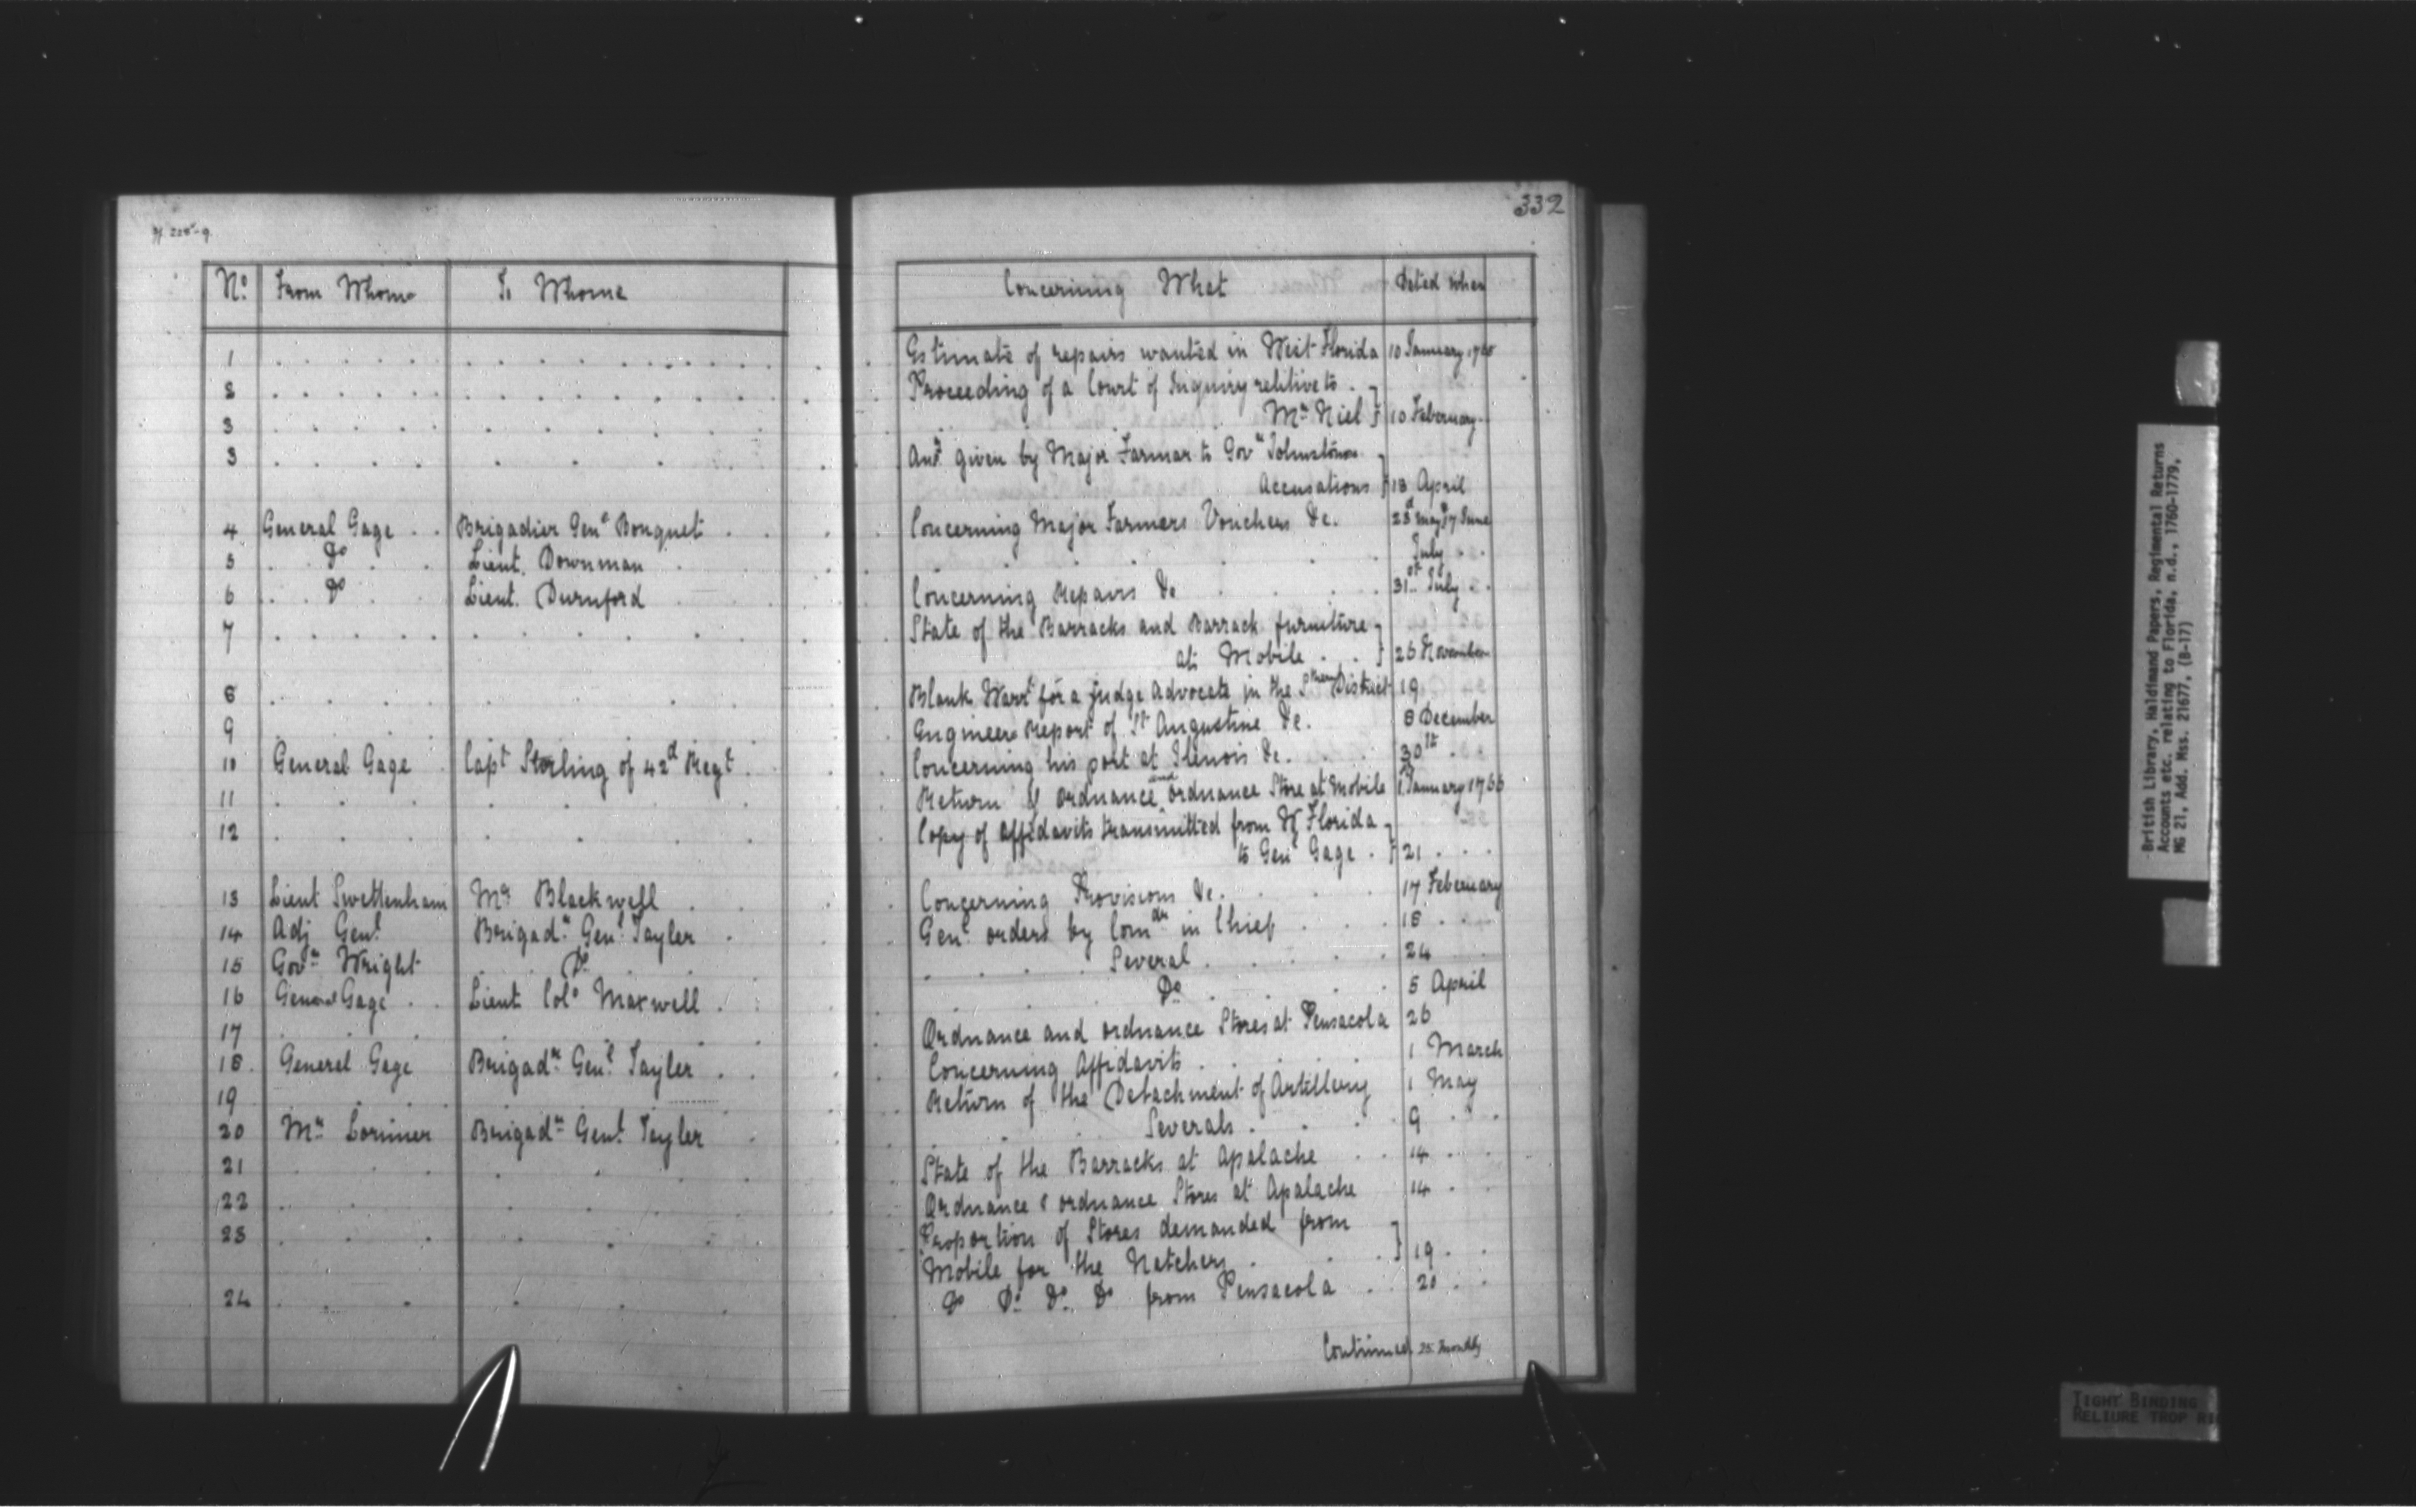 332
No. From Whome To Whome Concerning What Dated when
1 Estimate of repairs wanted in West Florida 10 January
2 Proceeding of a Court of Inquiry relitive to
3 Mr. Niel 10 Feberuary
3 Ansr. given by Major Farmar to Govr. Johnstones
Accusations 18 April
4 General Gage Brigadier Genl. Bouquet Concerning Major Farmers Vouchers &c. 23d May & 7 June
5 Do Lieut. Downman July
6 Do Lieut. Durnford Concerning Repairs &c 31st July
7 State of the Barracks and Barrack furniture
at Mobile 26 November
8 Blank Warrt for a Judge Advocate in the Sthern District 19
9 Engineers Report of St Augustine &c. 8 December
10 General Gage Capt Sterling of 42d Regt. Concerning his port at Ilenois &c. 30th
11 Return of ordnance and ordnance Store at Mobile 1 January 1766
12 Copy of affidavits transmitted from W Florida
to Genl Gage 21
13 Lieut Swettenham Mr Blackwell Concerning Provisions &c. 17 Feberuary
14 Adj Genl. Brigadr. Genl. Tayler Genl. orders by Comdr in Chief 18
15 Govr. Wright Do Several 24
16 General Gage Lieut Colo Maxwell Do 5 April
17 Ordnance and ordnance Stores at Pensacola 26
18 General Gage Brigadr. Genl. Tayler Concerning Affidavits 1 March
19 Return of the Detachment of Artillery 1 May
20 Mr. Lorimer Brigadr. Genl. Tayler Severals 9
21 State of the Barracks at Apalache 14
22 Ordnance & ordnance Stores at Apalache 14
23 Proportion of Stores demanded from
Mobile for the Netchers 19
24 Do Do Do Do from Pensacola 20
Continued
British Library, Haldimand Papers, Regimental Returns
Accounts etc. relating to Florida, n.d., 1760-1779.
MG 21, Add. Mss. 21677, (B-17)
TIGHT BINDING
RELIURE TROP